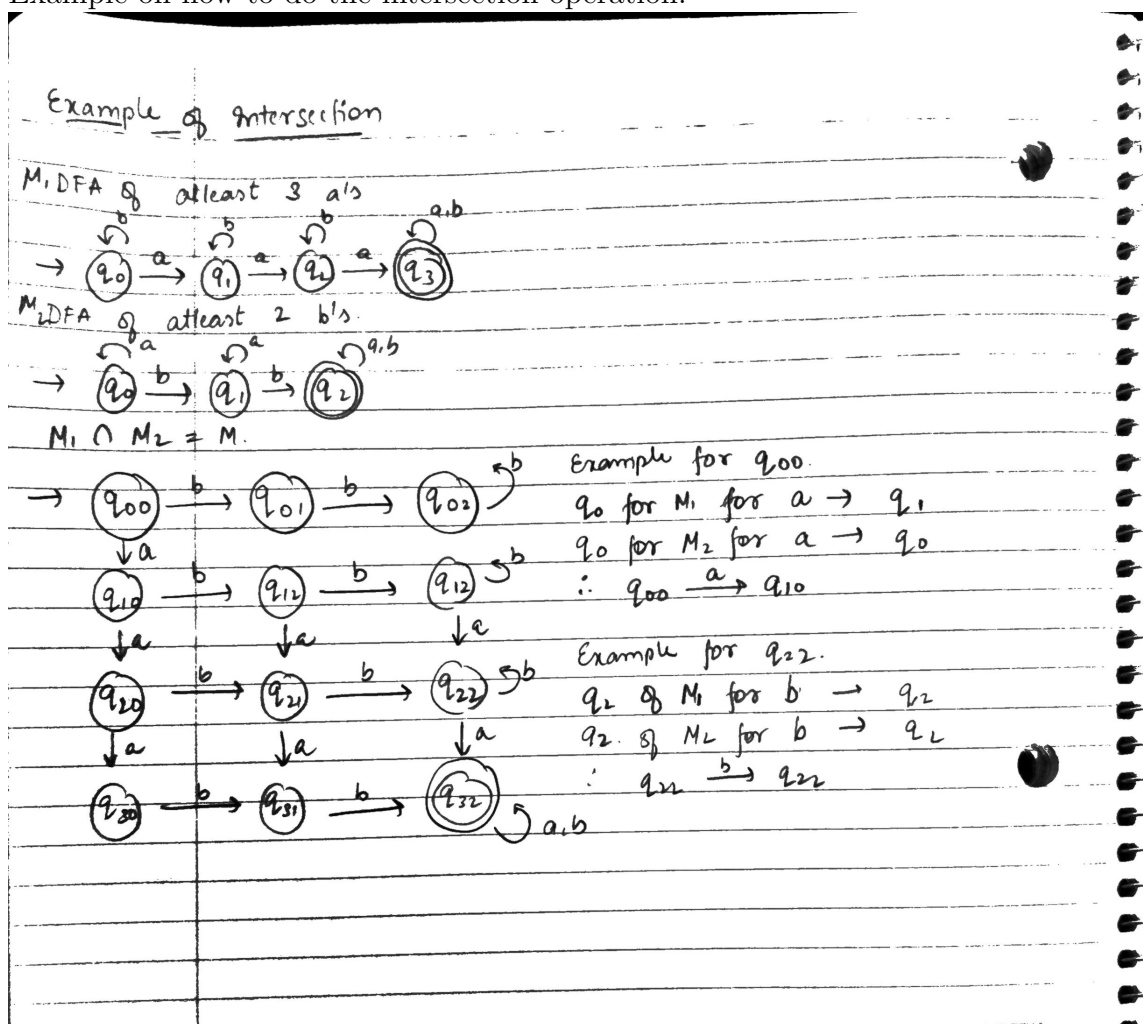 Example on how to do the intersection operation:
Example of Intersection
M1 DFA of atleast 3 a's
b b b a,b
→ q0 a→ q1 a→ q2 a→ q3
M2 DFA of atleast 2 b's.
a a a,b
→ q0 b→ q1 b→ q2
M1 ∩ M2 = M.
→ q00 b→ q01 b→ q02 b
↓a
q10 b→ q12 b→ q12 b
↓a ↓a ↓a
q20 b→ q21 b→ q22 b
↓a ↓a ↓a
q30 b→ q31 b→ q32
a,b
Example for q00.
q0 for M1 for a → q1
q0 for M2 for a → q0
∴ q00 a→ q10
Example for q22.
q2 of M1 for b → q2
q2. of M2 for b → q2
∴ q22 b→ q22